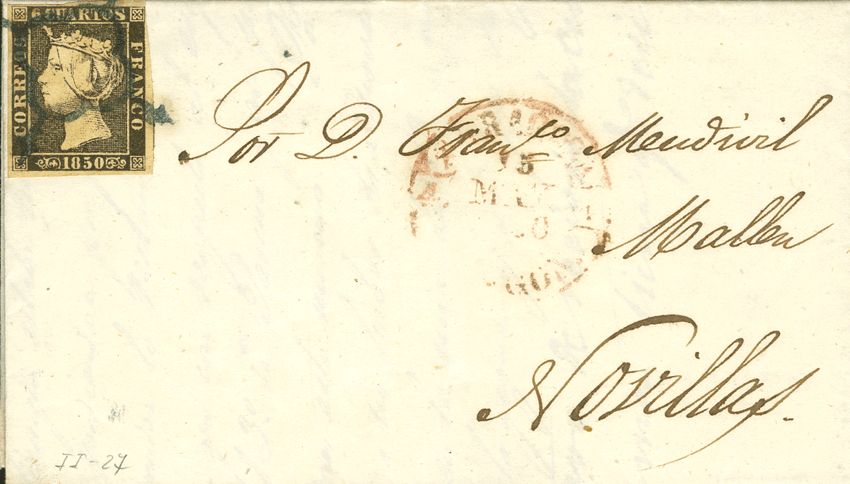 6 CUARTOS
CORREOS
FRANCO
1850
Por D. Franco Mendivil
15
Mallen
GON
Novillas.
II-27